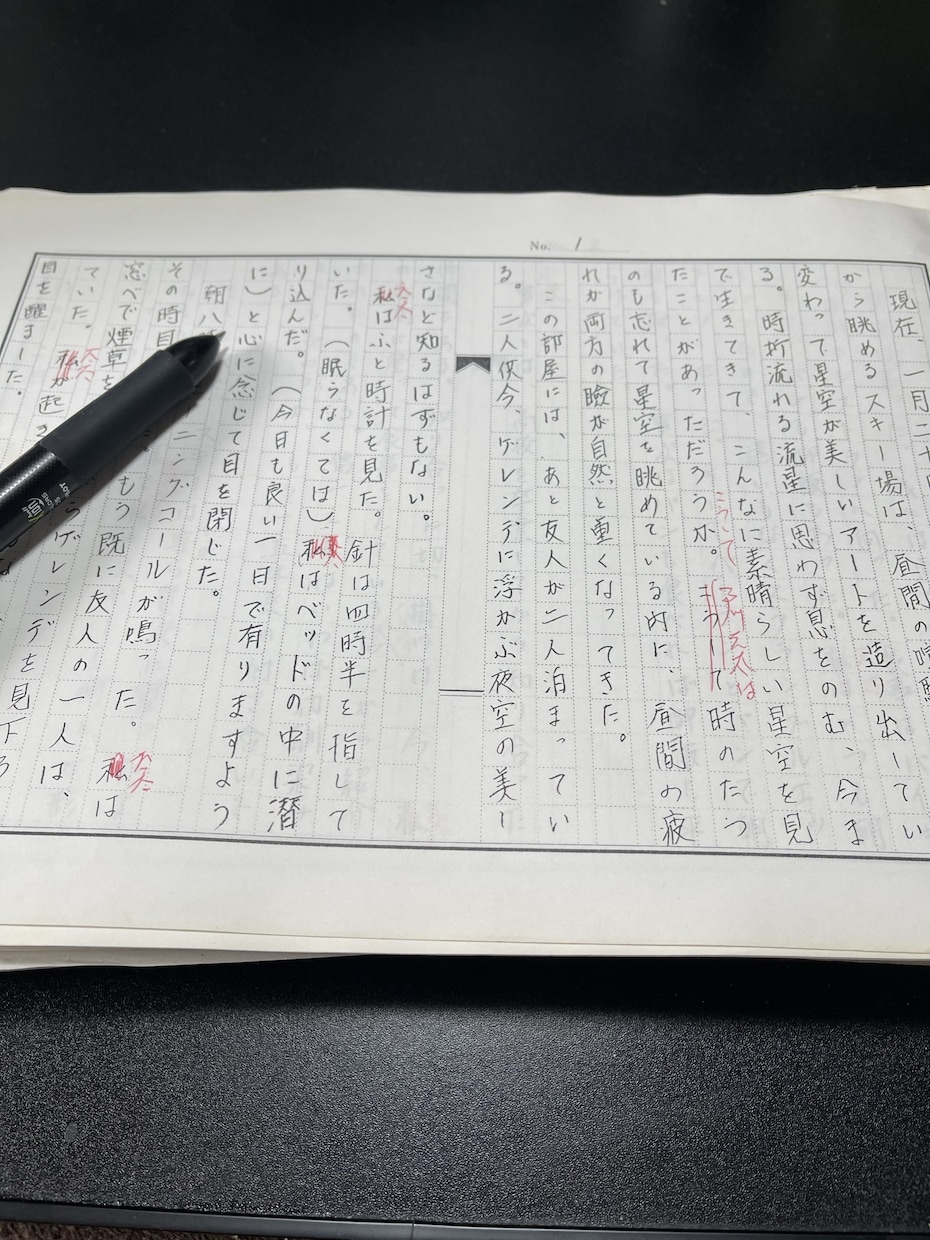 No. 1
現在、一月二十
から眺めるスキー場は、昼間の喧騒
変わって星空が美しいアートを造り出してい
る。時折流れる流星に思わず息をのむ、今ま
で生きてきて、こんなに素晴らしい星空を見
たことがあっただろうか。そうして時のたつ
こうして
は
のも忘れて星空を眺めている内に、昼間の疲
れが両方の瞼が自然と重くなってきた。
この部屋には、あと友人が二人泊まってい
る。二人供今、ゲレンデに浮かぶ夜空の美し
さなど知るはずもない。
私はふと時計を見た。針は四時半を指して
いた。(眠らなくては)私はベッドの中に潜
り込んだ。(今日も良い一日で有りますよう
に)と心に念じて目を閉じた。
朝八
その時目
ニングコールが鳴った。私は
目を醒ました。
私が起き
もう既に友人の一人は、
窓べで煙草を
ゲレンデを見下ろ
ていた。